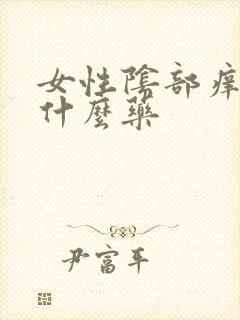 女性陰部痒
什麼藥
尹富平